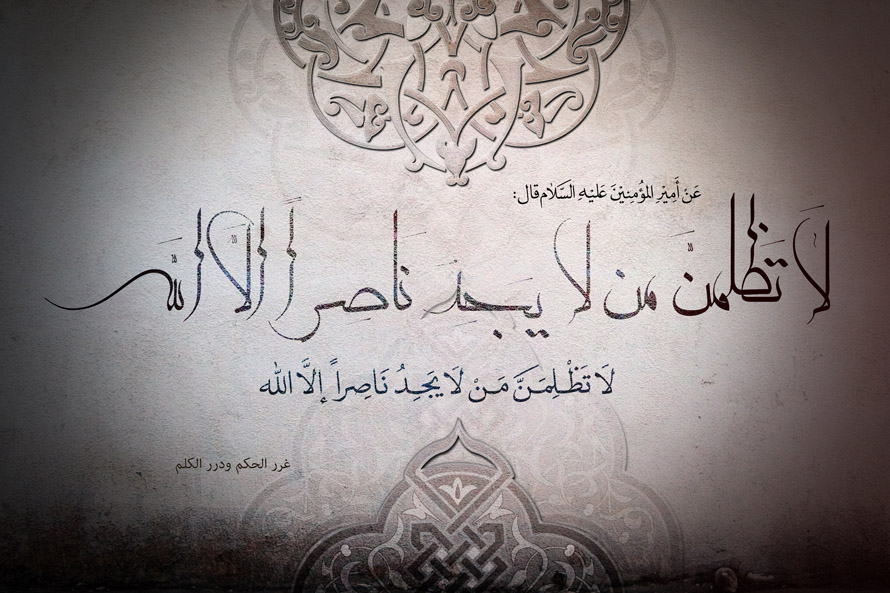 عَنْ أَمِيْرِ المُؤْمِنِيْنَ عَلَيْهِ السَّلَام قَال:
لَا تَظلمنَّ من لا يَجِدُ نَاصِراً الَّا اللهَ
لَا تَظْلِمَنَّ مَنْ لَا يَجِدُ نَاصِراً إلَّا الله
غرر الحكم ودرر الكلم